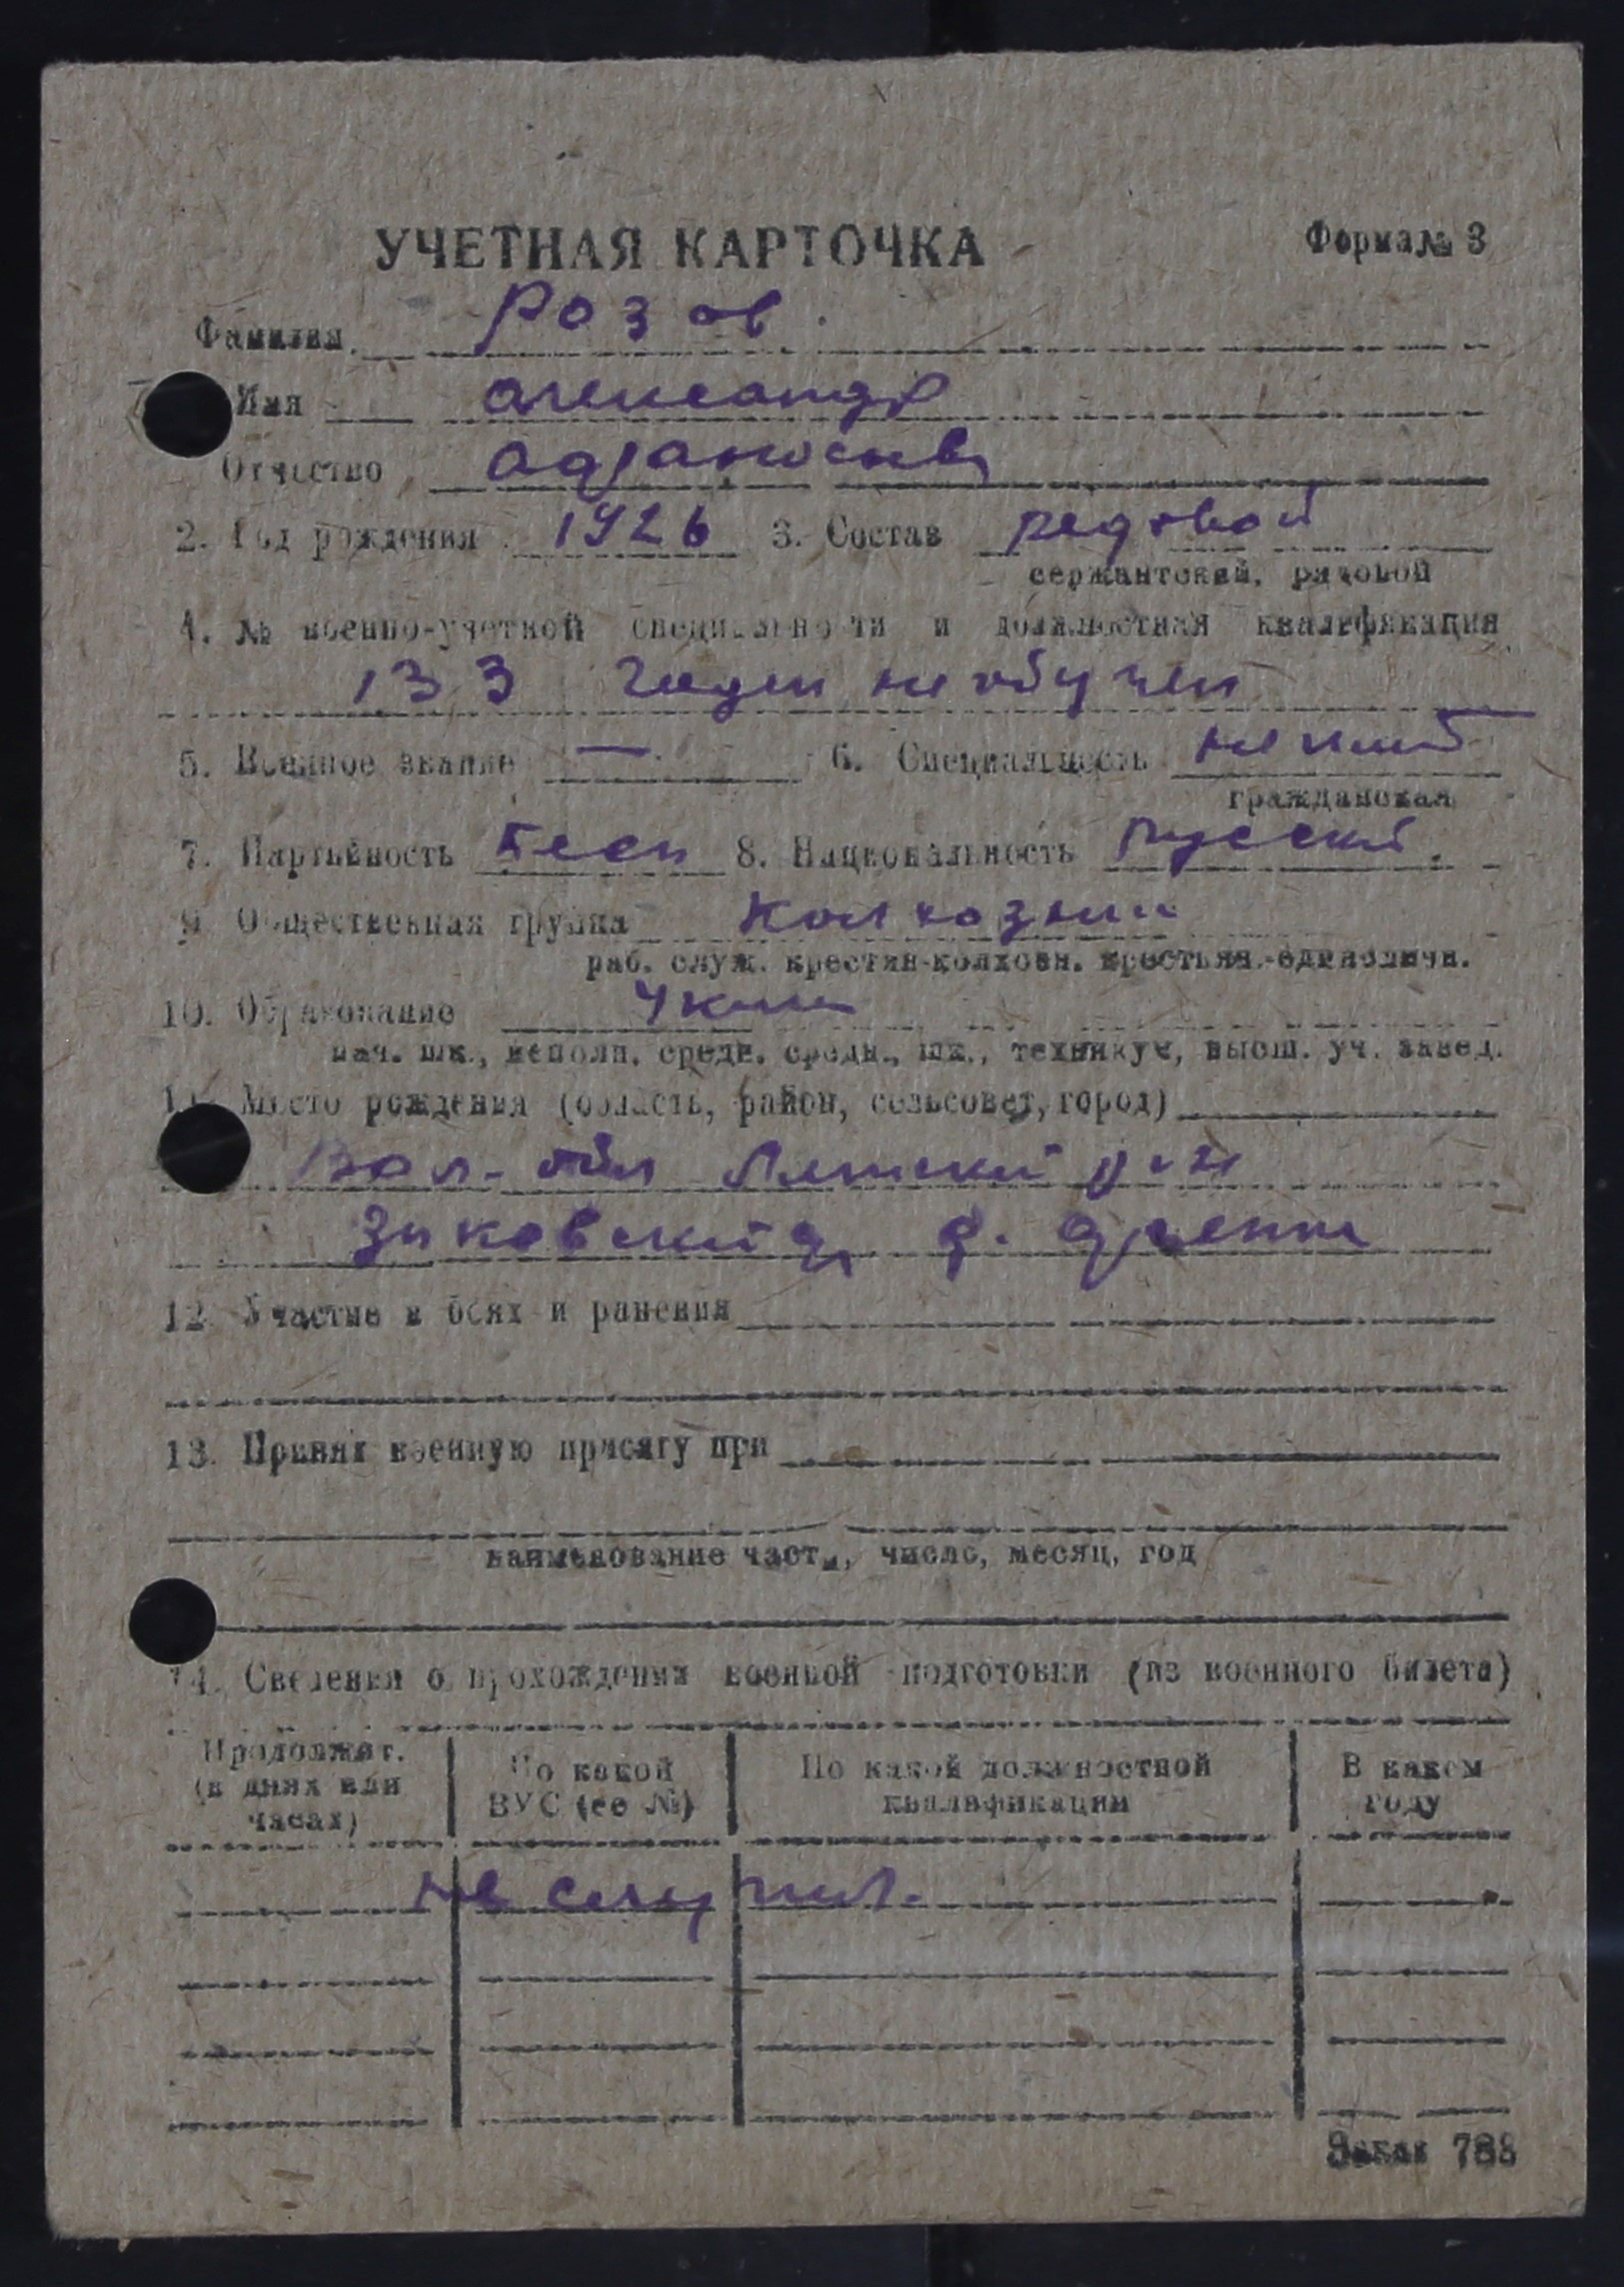 УЧЕТНАЯ КАРТОЧКА Форма № 3
Фамилия Розов
Имя Александр
Отчество
2. Год рождения 1926 3. Состав редовой
сержантский, рядовой
4. № военно-учетной специальности и должностная квалификация
133 годен не обучен
5. Военное звание — 6. Специальность не имеет
гражданская
7. Партийность бесп 8. Национальность русский
9. Общественная группа Колхозник
раб. служ. крестян-колхозн. крестьян.-единоличн.
10. Образование 4 клас
нач. шк., неполн. средн. средн., шк., техникум, высш. уч. завед.
11. Место рождения (область, район, сельсовет, город)
Вол-обл р-н
д.
12. Участие в боях и ранения
13. Принял военную присягу при
наименование части, число, месяц, год
14. Сведения о прохождения военной подготовки (из военного билета)
Продолжит. (в днях или часах) По какой ВУС (ее №) По какой должностной квалификации В каком году
не служил.
Заказ 788